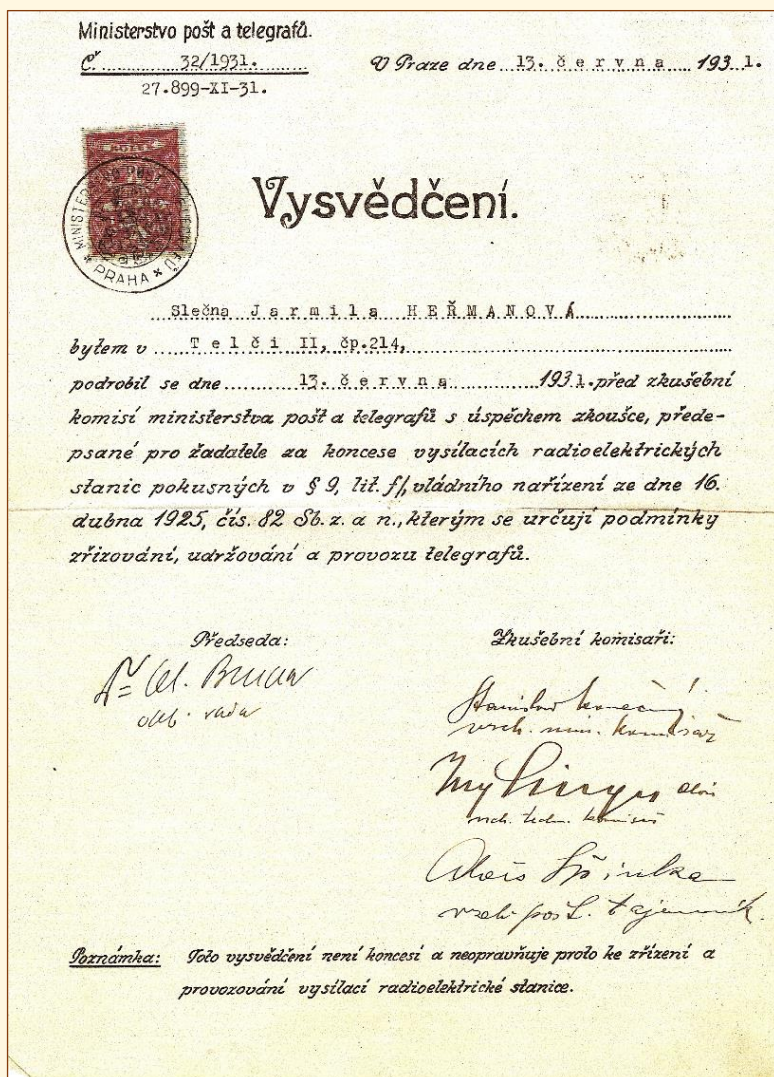 Ministerstvo pošt a telegrafů.
Č. 32/1931. V Praze dne 13. června 1931.
27.899-XI-31.
KOLEK
MINISTERSTVO POŠT A TELEGRAFŮ * PRAHA *
Vysvědčení.
Slečna Jarmila HEŘMANOVÁ
bytem v Telči II, čp.214,
podrobil se dne 13. června 1931. před zkušební
komisí ministerstva pošt a telegrafů s úspěchem zkoušce, přede-
psané pro žadatele za koncese vysílacích radioelektrických
stanic pokusných v § 9, lit. f/, vládního nařízení ze dne 16.
dubna 1925, čís. 82 Sb. z. a n., kterým se určují podmínky
zřizování, udržování a provozu telegrafů.
Předseda: Zkušební komisaři:
odb. rada
Stanislav Konečný
vrch. min. komisař
Ing
vrch. techn. komisař
Alois
vrch. pošt. tajemník.
Poznámka: Toto vysvědčení není koncesí a neopravňuje proto ke zřízení a
provozování vysílací radioelektrické stanice.